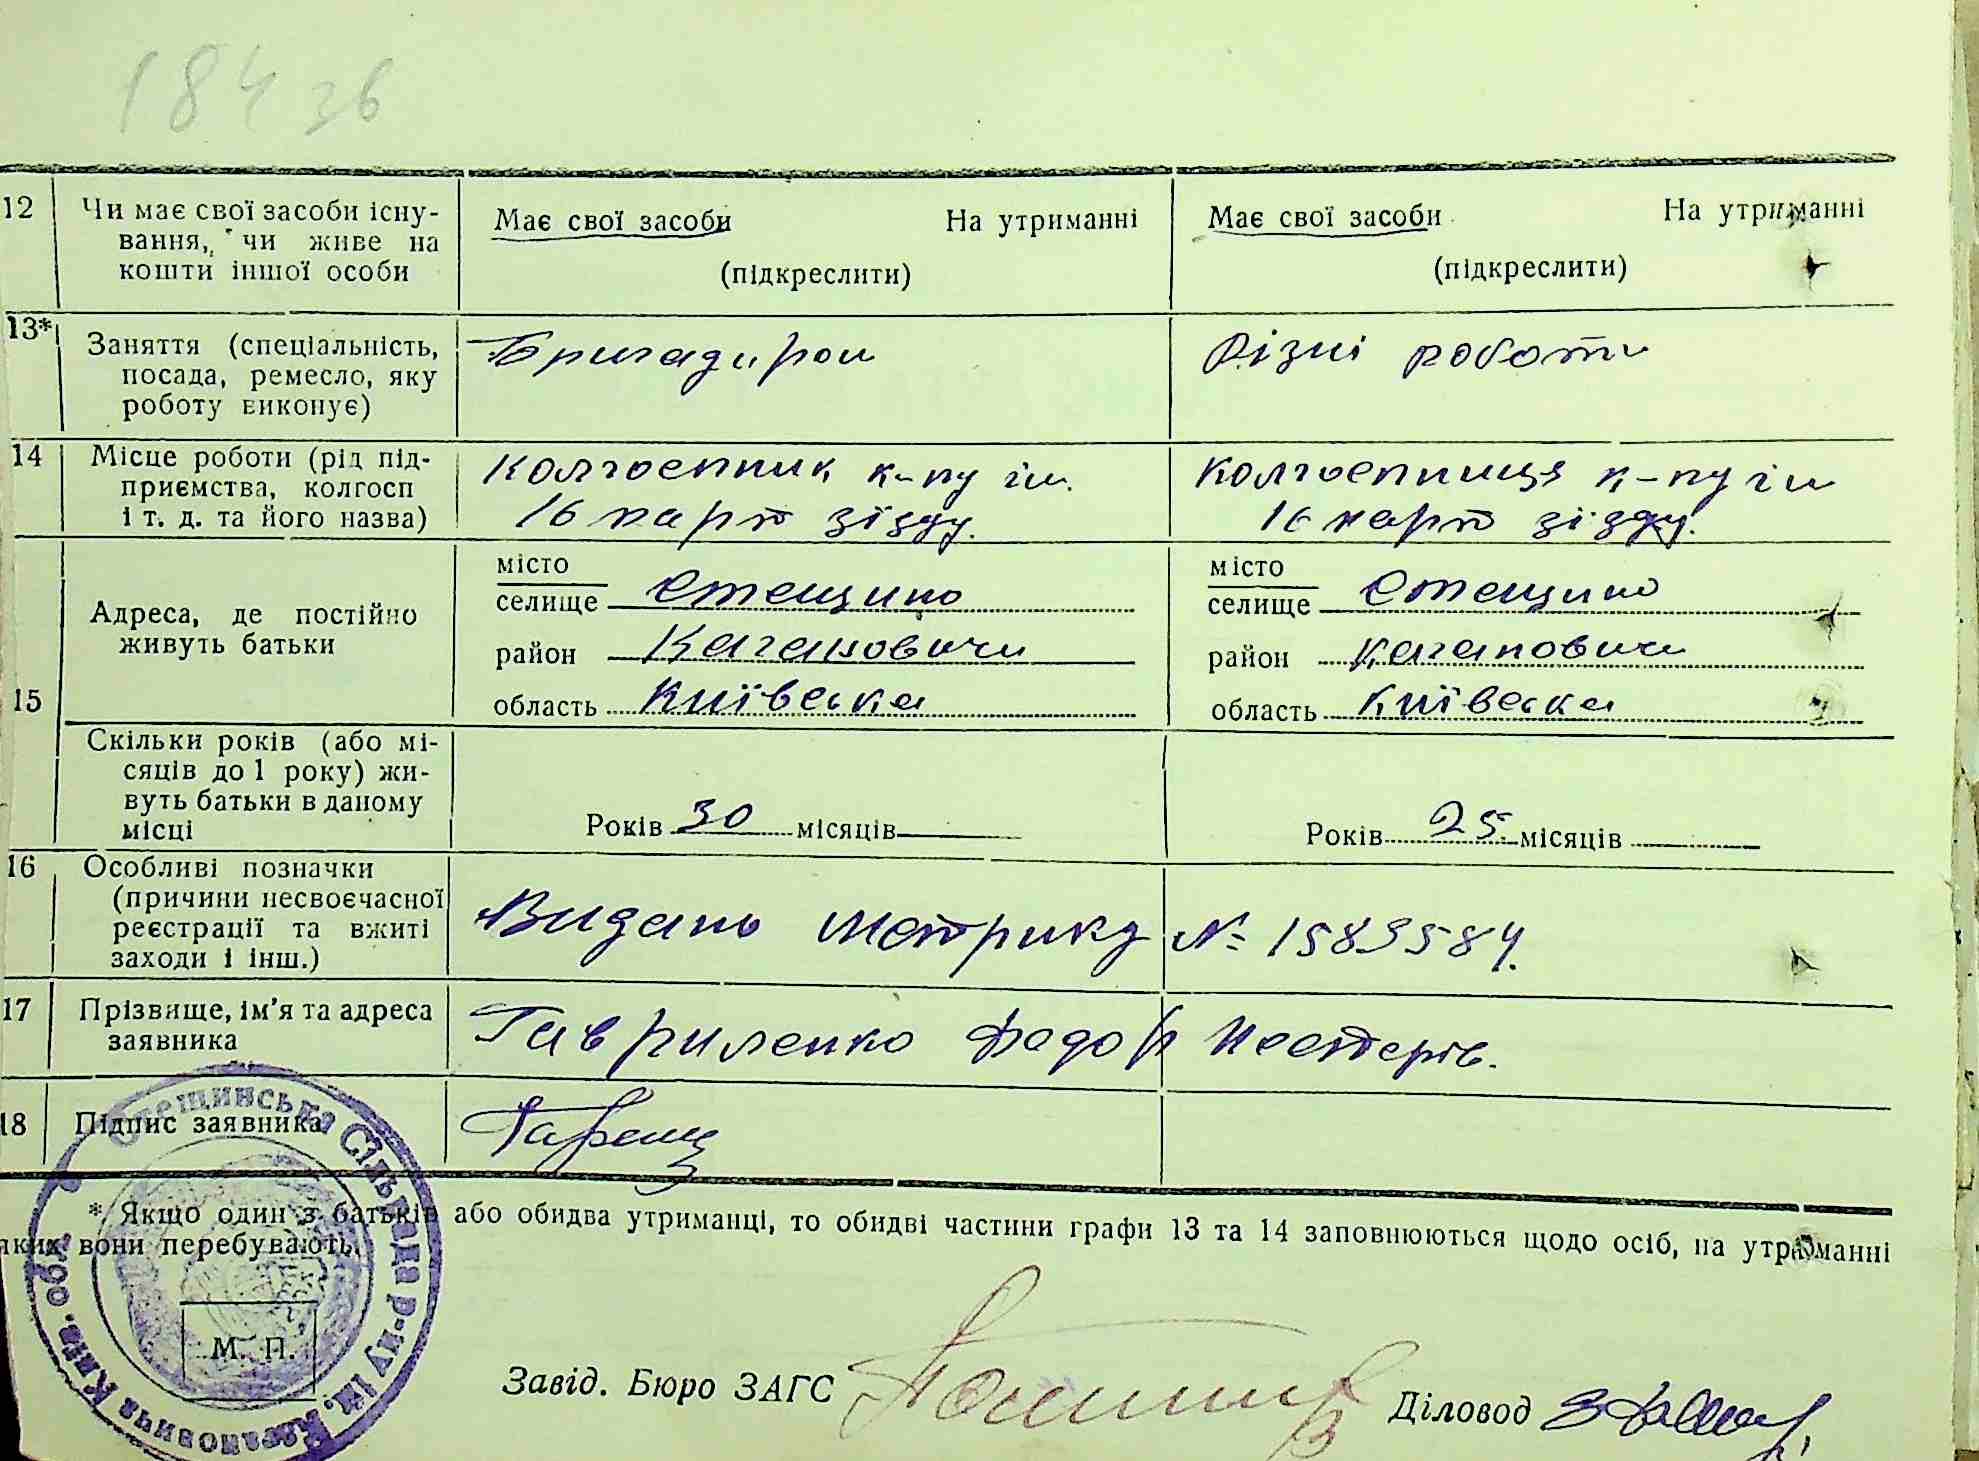 184 зв
12 Чи має свої засоби існу- Має свої засоби На утриманні Має свої засоби На утриманні
вання, чи живе на (підкреслити) (підкреслити)
кошти іншої особи
13* Заняття (спеціальність, Бригадиром Різні роботи
посада, ремесло, яку
роботу виконує)
14 Місце роботи (рід під- колгоспник к-пу ім. колгоспниця к-пу ім
приємства, колгосп
і т. д. та його назва) 16 парт зізду. 16 парт зізду.
15 Адреса, де постійно живуть батьки
місто місто
селище Стещино селище Стещино
район Кагановичи район Кагановичи
область Київська область Київська
Скільки років (або мі-
сяців до 1 року) жи-
вуть батьки в даному
місці Років 30 місяців Років 25 місяців
16 Особливі позначки
(причини несвоєчасної Видано метрику № 1583584.
реєстрації та вжиті
заходи і інш.)
17 Прізвище, ім'я та адреса Гавриленко Федор Нестерів.
заявника
18 Підпис заявника
* Якщо один з батьків або обидва утриманці, то обидві частини графи 13 та 14 заповнюються щодо осіб, на утриманні
яких вони перебувають.
Стещинська Сільрада р-ну ім. Кагановича Київ. обл.
М. П.
Завід. Бюро ЗАГС Діловод